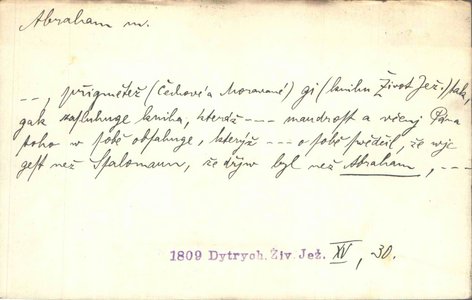 Abraham m.
– –, přigmětež (Čechové a Moravané) gi (knihu Život Jež.) tak,
gak zasluhuge kniha, kteráž – – – maudrost a včenj Pána
toho w sobě obsahuge, kterýž – – – o sobě swědčil, že wjc
gest než Ssalomaun, že dřjw byl než Abraham, – – –
1809 Dytrych. Živ. Jež. XV, 30.